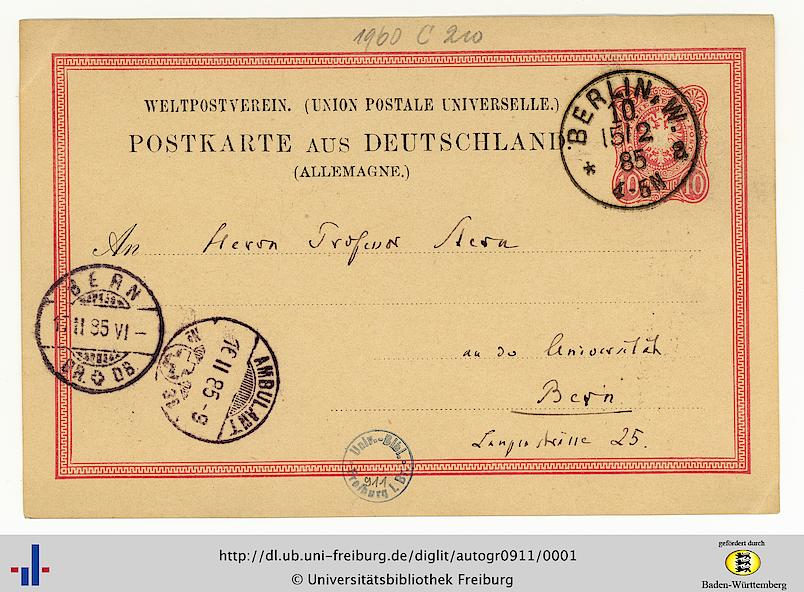 1960 C 210
WELTPOSTVEREIN. (UNION POSTALE UNIVERSELLE.)
POSTKARTE AUS DEUTSCHLAND
(ALLEMAGNE.)
BERLIN, W.
10
15/2
85
4-5N
* a
10 10
An Herrn Professor Stern
BERN
II 85 VI –
BR. DB.
AMBULANT
16 II 85 – 9
an der Universität
Bern
Längasstrasse 25.
Univ.-Bibl.
911
Freiburg i. Br.
http://dl.ub.uni-freiburg.de/diglit/autogr0911/0001
© Universitätsbibliothek Freiburg
gefördert durch
Baden-Württemberg